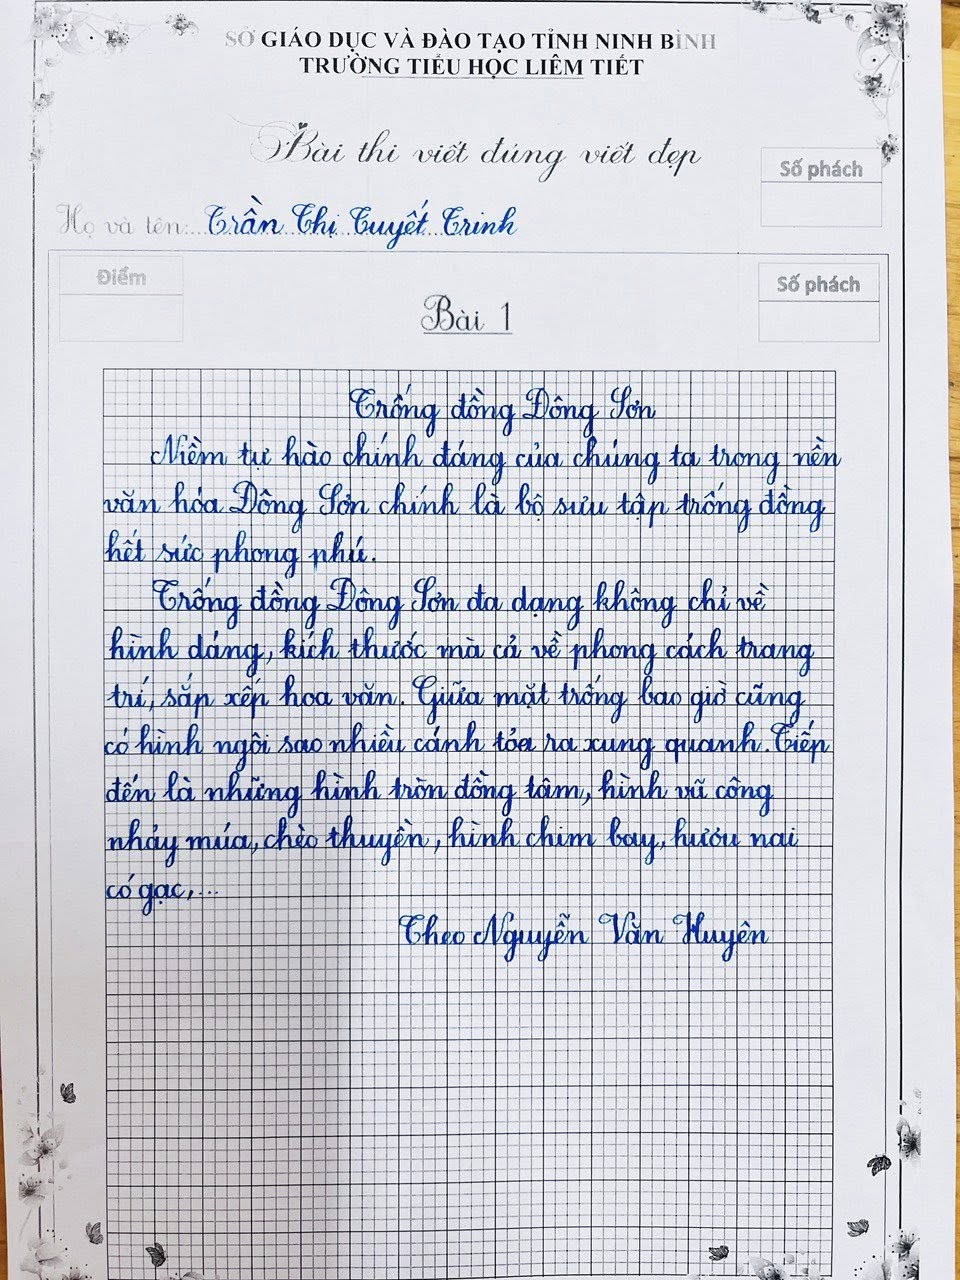 SỞ GIÁO DỤC VÀ ĐÀO TẠO TỈNH NINH BÌNH
TRƯỜNG TIỂU HỌC LIÊM TIẾT
Bài thi viết đúng viết đẹp
Số phách
Họ và tên:... Trần Thị Tuyết Trinh
Điểm
Số phách
Bài 1
Trống đồng Đông Sơn
Niềm tự hào chính đáng của chúng ta trong nền
văn hóa Đông Sơn chính là bộ sưu tập trống đồng
hết sức phong phú.
Trống đồng Đông Sơn đa dạng không chỉ về
hình dáng, kích thước mà cả về phong cách trang
trí, sắp xếp hoa văn. Giữa mặt trống bao giờ cũng
có hình ngôi sao nhiều cánh tỏa ra xung quanh. Tiếp
đến là những hình tròn đồng tâm, hình vũ công
nhảy múa, chèo thuyền, hình chim bay, hươu nai
có gạc,...
Theo Nguyễn Văn Huyên